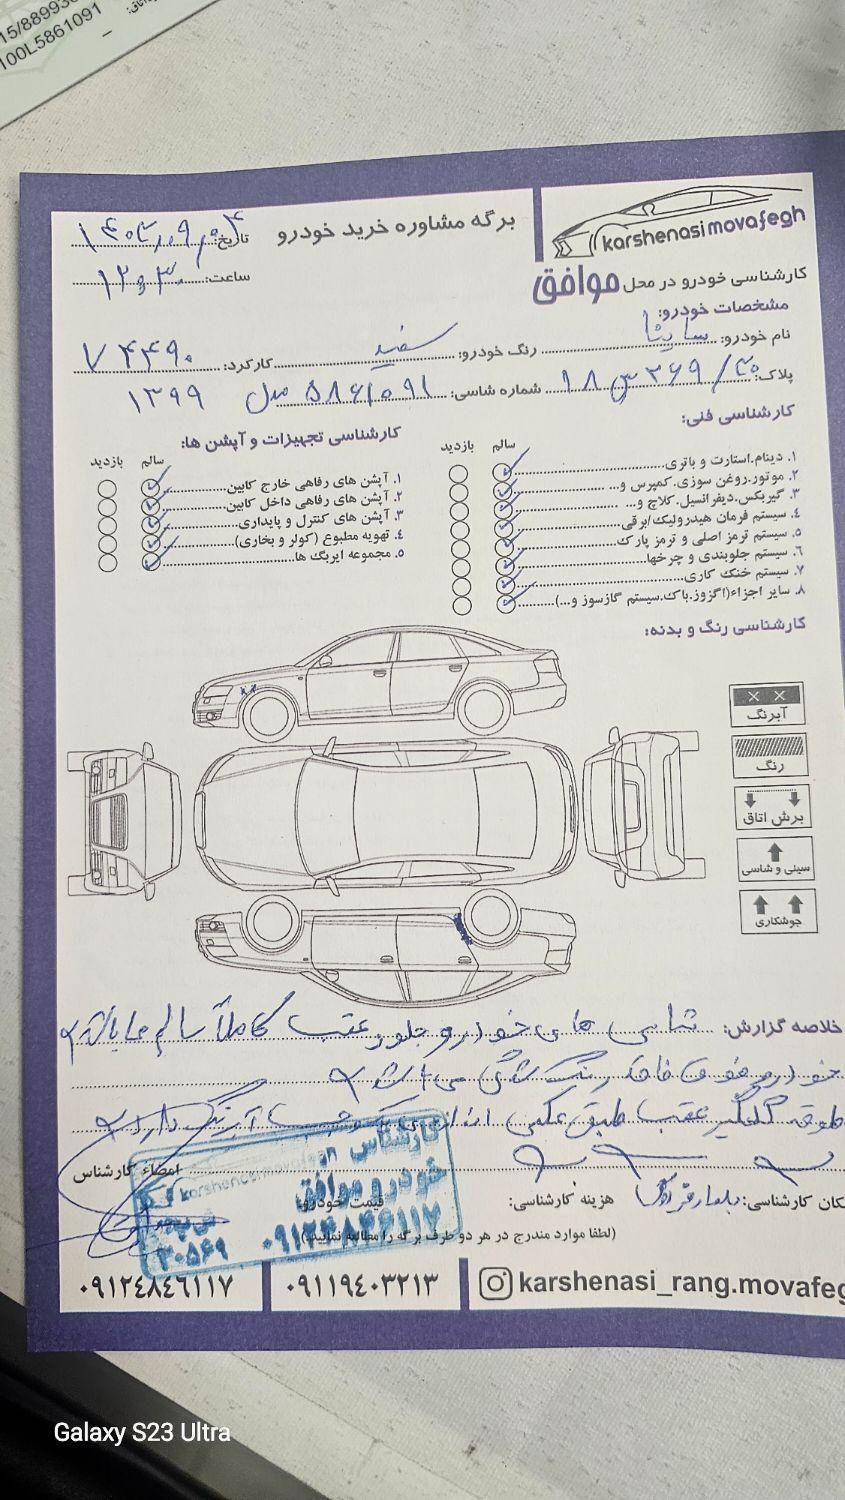 15/8899
100L5861091
karshenasi movafegh
برگه مشاوره خرید خودرو
تاریخ:
ساعت: ۱۲:۳۰
کارشناسی خودرو در محل موافق
مشخصات خودرو:
نام خودرو: ساینا رنگ خودرو: سفید کارکرد: ۷۴۴۹۰
پلاک: ۲۶۹ س ۱۸ شماره شاسی: ۵۸۶۱۰۹۱ مدل ۱۳۹۹
کارشناسی فنی:
سالم بازدید
۱. دینام.استارت و باتری
۲. موتور.روغن سوزی.کمپرس و...
۳. گیربکس.دیفرانسیل.کلاچ و...
۴. سیستم فرمان هیدرولیک/برقی
۵. سیستم ترمز اصلی و ترمز پارک
۶. سیستم جلوبندی و چرخها
۷. سیستم خنک کاری
۸. سایر اجزاء(اگزوز.باک.سیستم گازسوز و...)
کارشناسی تجهیزات و آپشن ها:
سالم بازدید
۱. آپشن های رفاهی خارج کابین
۲. آپشن های رفاهی داخل کابین
۳. آپشن های کنترل و پایداری
۴. تهویه مطبوع (کولر و بخاری)
۵. مجموعه ایربگ ها
کارشناسی رنگ و بدنه:
آبرنگ
رنگ
برش اتاق
سینی و شاسی
جوشکاری
خلاصه گزارش: شاسی های خودرو جلو و عقب کاملاً سالم می باشد
خودرو فوق فاقد رنگ شدگی می باشد
گلگیر عقب طبق عکس آبرنگ دارد
امضاء کارشناس
کارشناس
خودرو موافق
۰۹۱۲۴۸۴۶۱۱۷
۲۰۵۶۹
مکان کارشناسی: بلوار فردوس هزینه کارشناسی: قیمت خودرو:
(لطفا موارد مندرج در هر دو طرف برگه را مطالعه نمایید.)
۰۹۱۲۴۸۴۶۱۱۷
۰۹۱۱۹۴۰۳۲۱۳
karshenasi_rang.movafeg
Galaxy S23 Ultra